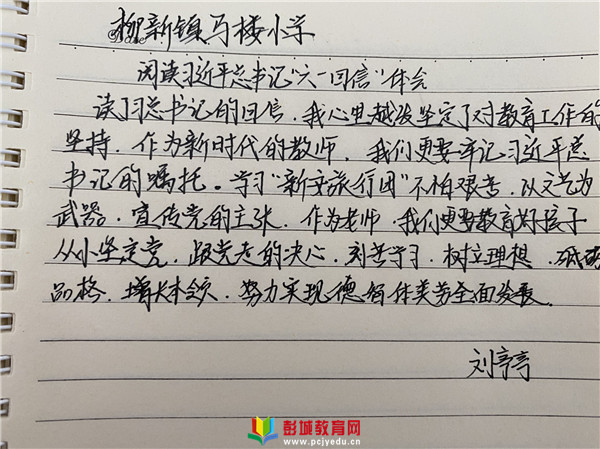 柳新镇马楼小学
阅读习近平总书记“六一回信”体会
读了习总书记的回信，我心里越发坚定了对教育工作的
坚持，作为新时代的教师，我们更要牢记习近平总
书记的嘱托。学习“新安旅行团”不怕艰苦，以文艺为
武器，宣传党的主张，作为老师，我们更要教育好孩子
从小坚定党，跟党走的决心，刻苦学习，树立理想，砥砺
品格，增长本领，努力实现德智体美劳全面发展。
刘亭亭
彭城教育网
www.pcjyedu.cn